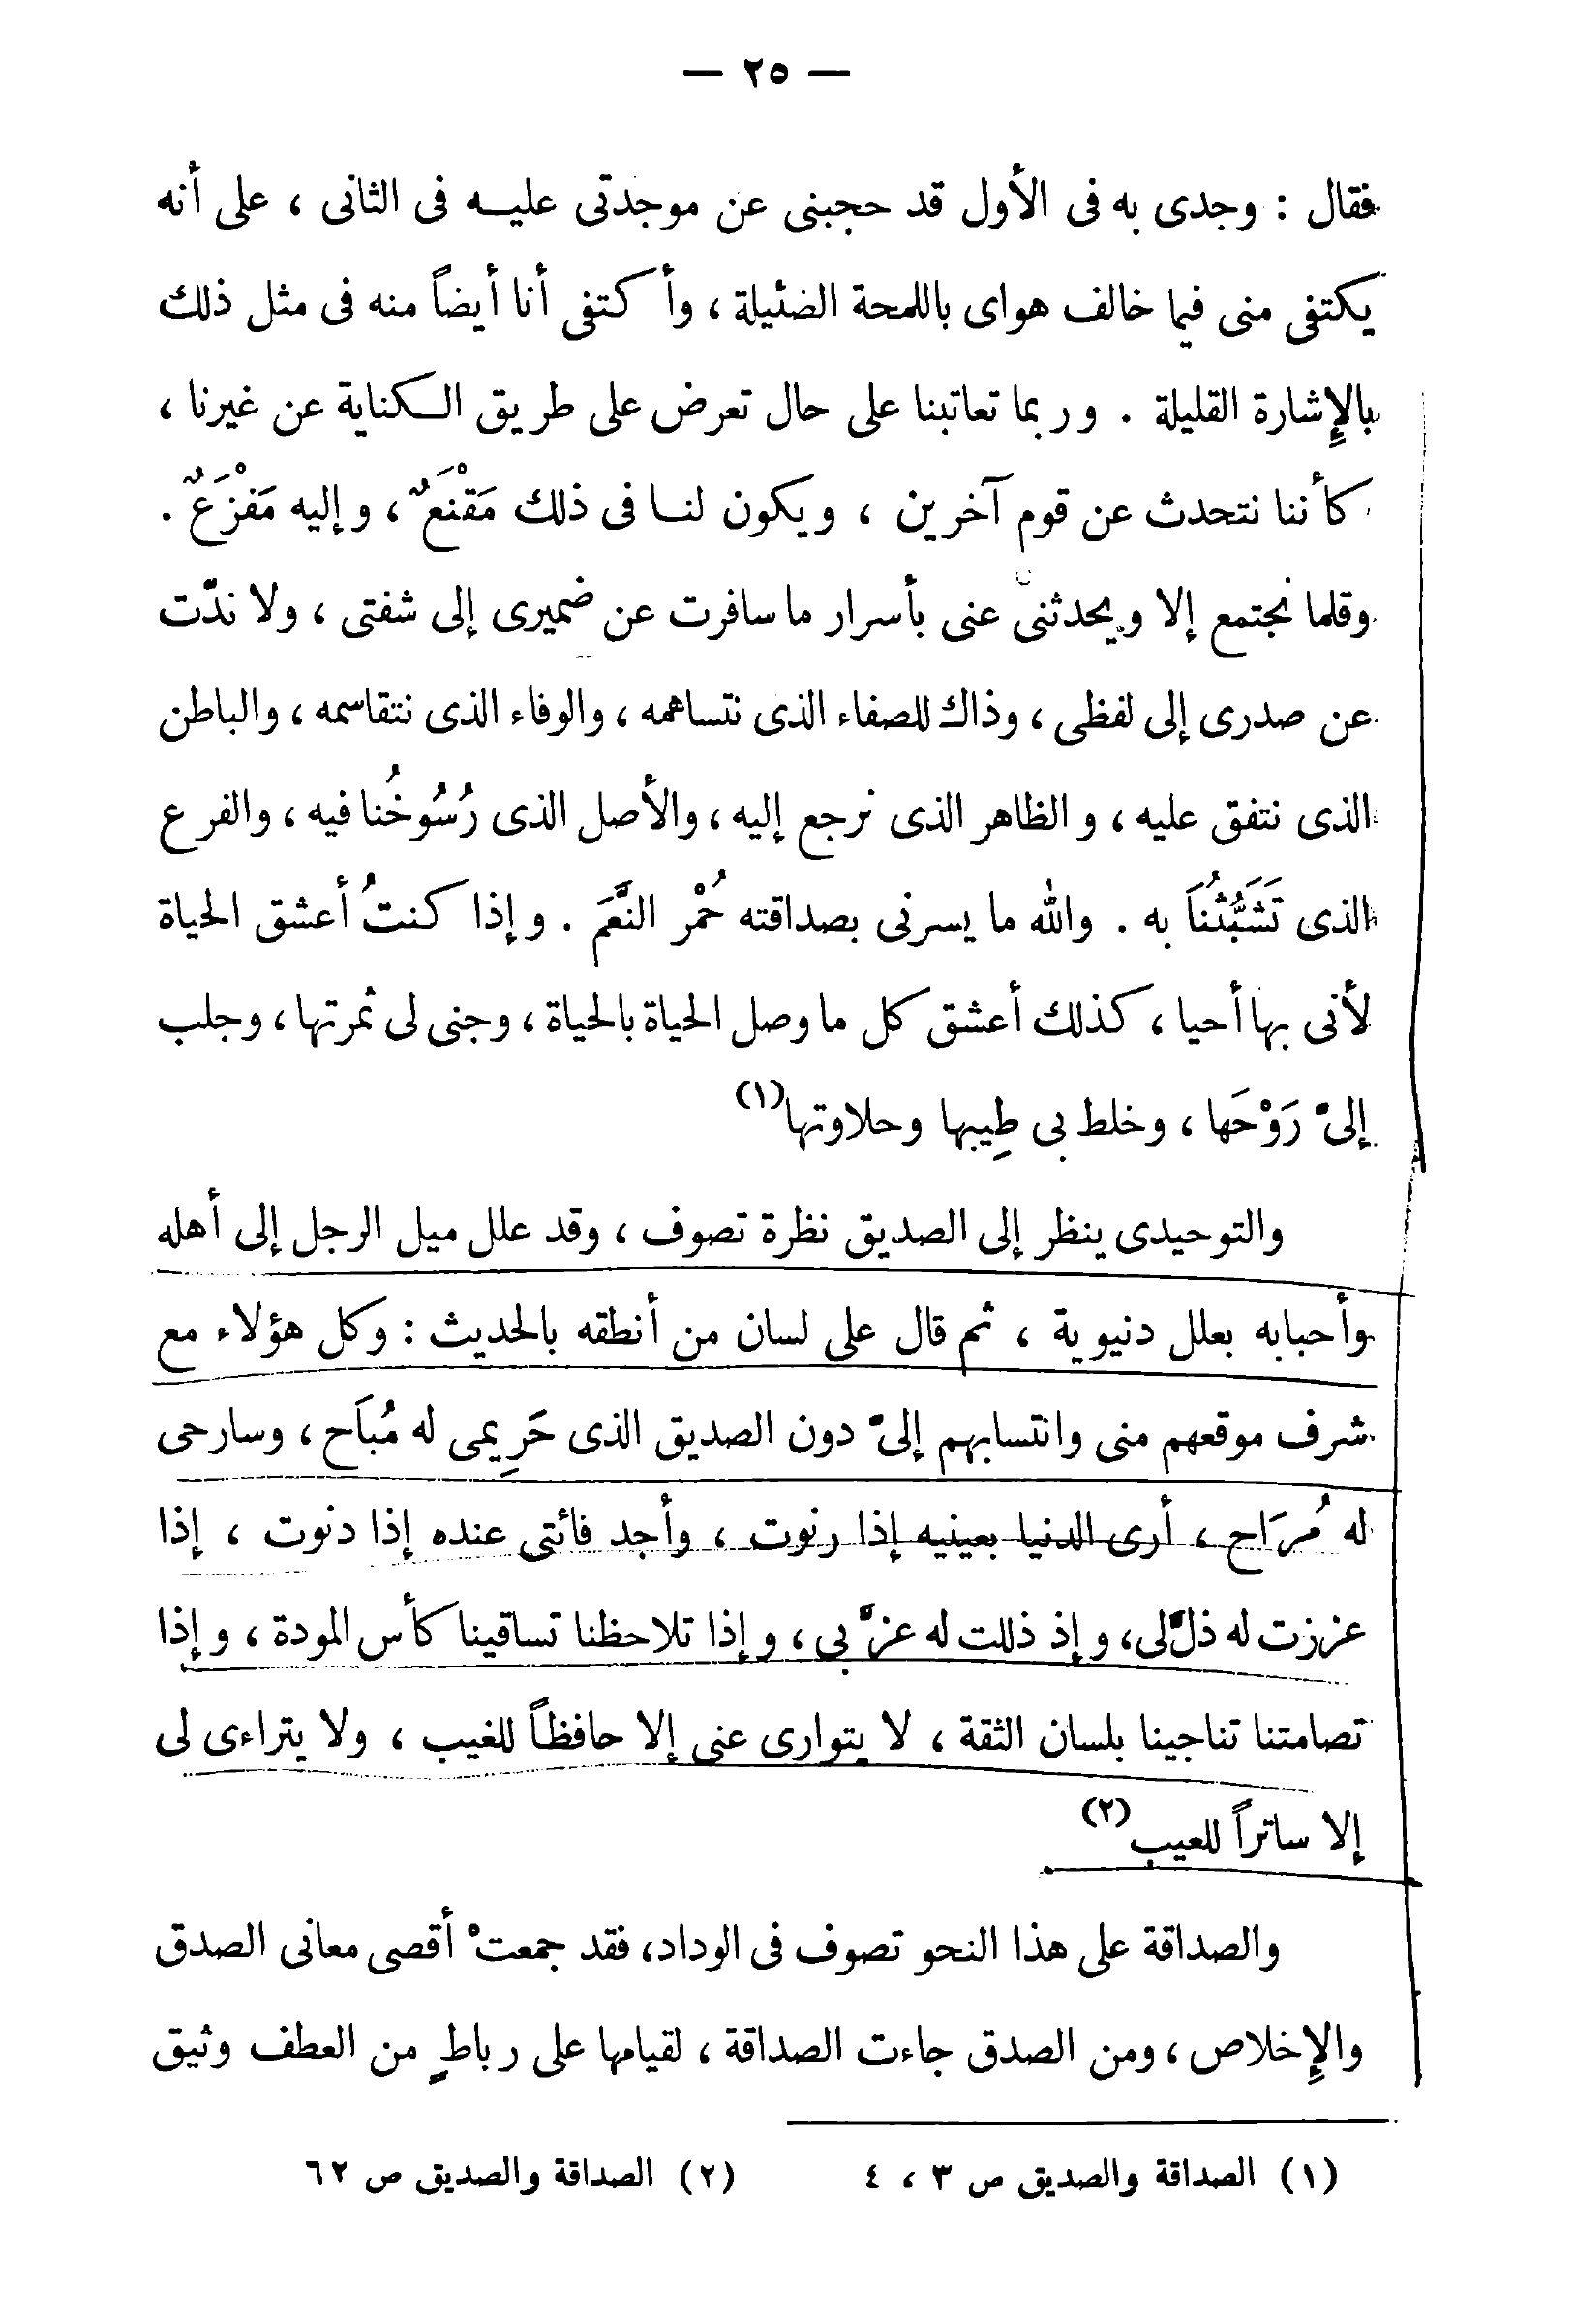 — ٢٥ —
فقال : وجدى به فى الأول قد حجبنى عن موجدتى عليه فى الثانى ، على أنه
يكتفى منى فيما خالف هواى باللمحة الضئيلة ، وأكتفى أنا أيضاً منه فى مثل ذلك
بالإشارة القليلة . وربما تعاتبنا على حال تعرض على طريق الكناية عن غيرنا ،
كأننا نتحدث عن قوم آخرين ، ويكون لنا فى ذلك مَقْنَعٌ ، وإليه مَفْزَعٌ .
وقلما نجتمع إلا ويحدثنى عنى بأسرار ما سافرت عن ضميرى إلى شفتى ، ولا ندّت
عن صدرى إلى لفظى ، وذاك للصفاء الذى نتساهمه ، والوفاء الذى نتقاسمه ، والباطن
الذى نتفق عليه ، والظاهر الذى نرجع إليه ، والأصل الذى رُسُوخُنا فيه ، والفرع
الذى تَشَبُّثُنَا به . والله ما يسرنى بصداقته حُمْر النَّعَم . وإذا كنتُ أعشق الحياة
لأنى بها أحيا ، كذلك أعشق كل ما وصل الحياة بالحياة ، وجنى لى ثمرتها ، وجلب
إلىّ رَوْحَها ، وخلط بى طِيبها وحلاوتها (١)
والتوحيدى ينظر إلى الصديق نظرة تصوف ، وقد علل ميل الرجل إلى أهله
وأحبابه بعلل دنيوية ، ثم قال على لسان من أنطقه بالحديث : وكل هؤلاء مع
شرف موقعهم منى وانتسابهم إلىّ دون الصديق الذى حَرِيمى له مُبَاح ، وسارحى
له مُرَاح ، أرى الدنيا بعينيه إذا رنوت ، وأجد فائتى عنده إذا دنوت ، إذا
عززت له ذلّ لى، وإذ ذللت له عزّ بى ، وإذا تلاحظنا تساقينا كأس المودة ، وإذا
تصامتنا تناجينا بلسان الثقة ، لا يتوارى عنى إلا حافظاً للغيب ، ولا يتراءى لى
إلا ساتراً للعيب (٢)
والصداقة على هذا النحو تصوف فى الوداد، فقد جمعتْ أقصى معانى الصدق
والإِخلاص ، ومن الصدق جاءت الصداقة ، لقيامها على رباطٍ من العطف وثيق
(١) الصداقة والصديق ص ٣ ، ٤ (٢) الصداقة والصديق ص ٦٢